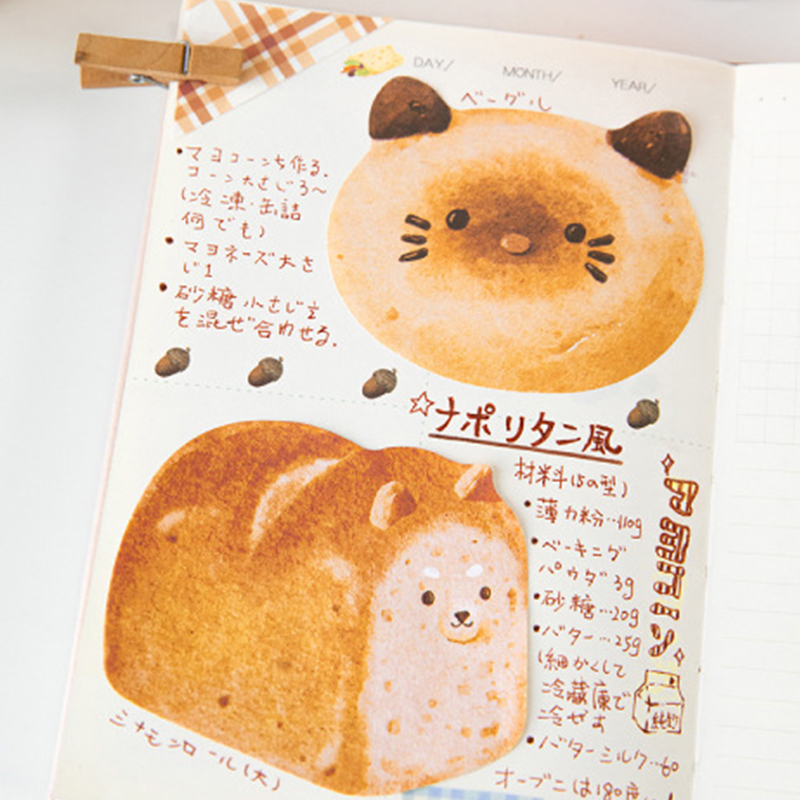 DAY/ MONTH/ YEAR/
ベーグル
・マヨコーンを作る.
コーン大さじ3〜
(冷凍・缶詰
何でも)
・マヨネーズ大さ
じ1
・砂糖 小さじ
を混ぜ合わせる.
☆ナポリタン風
材料(5の型)
・薄力粉…110g
・ベーキング
パウダ 3g
・砂糖…20g
・バター…25g
(細かくして
冷蔵庫で
・バターミルク…60
オーブンは180度
シナモンロール(大)